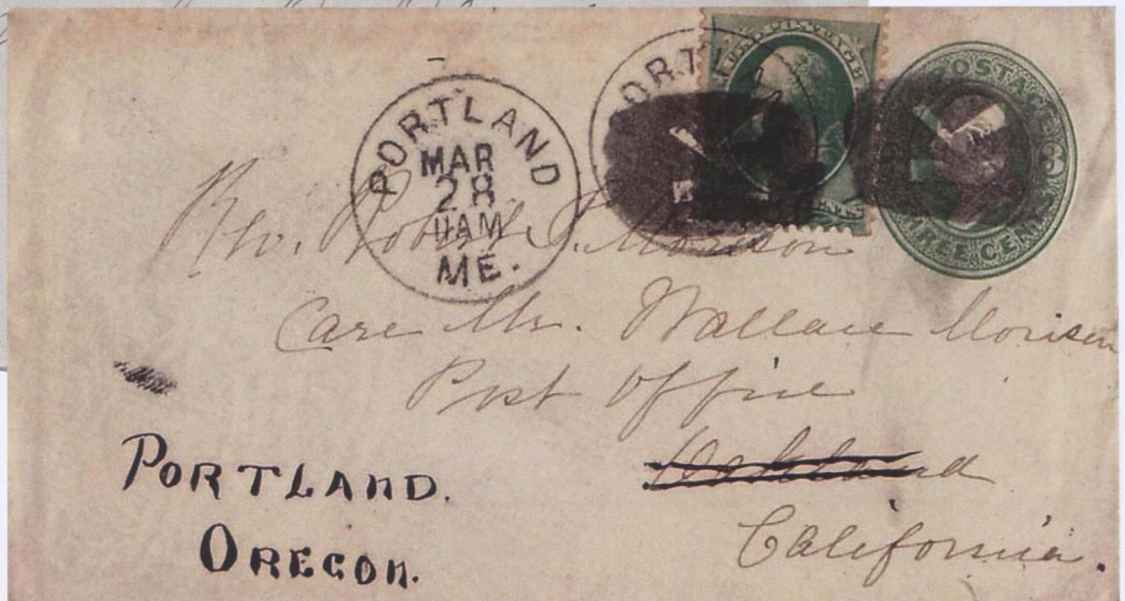 PORTLAND
MAR
28
11AM
ME.
PORTLA
U.S. POSTAGE
POSTAGE
3
THREE CENTS
Rev. Robert S. Morison
Care Mr. Wallace Morison
Post Office
Oakland
California.
PORTLAND.
OREGON.